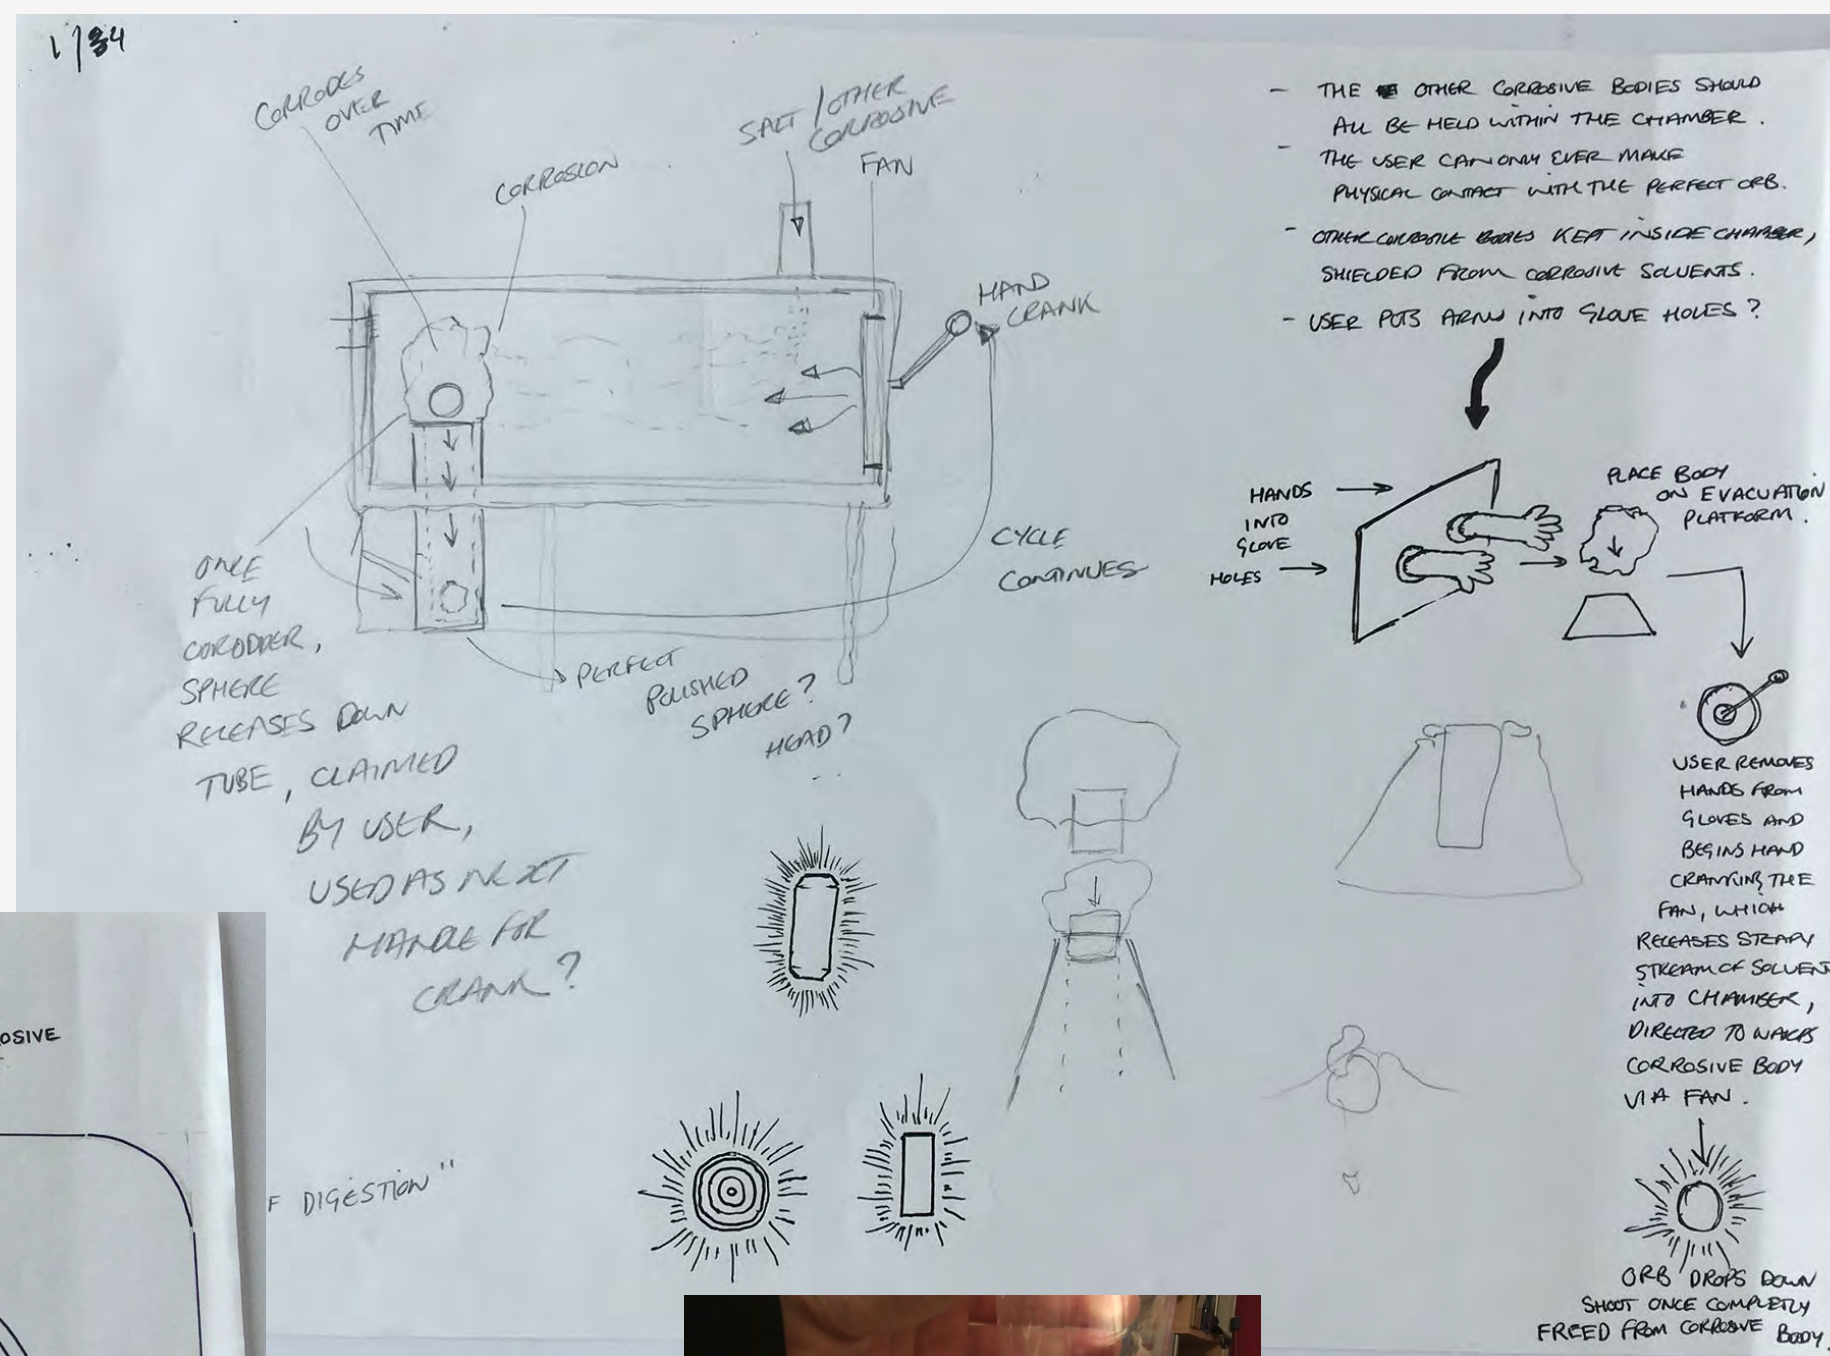 CORRODES
OVER
TIME
CORROSION
SALT / OTHER
CORROSIVE
FAN
HAND
CRANK
CYCLE
CONTINUES
ONCE
FULLY
CORODDER,
SPHERE
RELEASES DOWN
TUBE, CLAIMED
BY USER,
USED AS NEXT
HANDLE FOR
CRANK?
PERFECT
POLISHED
SPHERE?
HEAD?
- THE OTHER CORROSIVE BODIES SHOULD
ALL BE HELD WITHIN THE CHAMBER.
- THE USER CAN ONLY EVER MAKE
PHYSICAL CONTACT WITH THE PERFECT ORB.
- OTHER CORROSIVE BODIES KEPT INSIDE CHAMBER,
SHIELDED FROM CORROSIVE SOLVENTS.
- USER PUTS ARMS INTO GLOVE HOLES?
HANDS
INTO
GLOVE
HOLES
PLACE BODY
ON EVACUATION
PLATFORM.
USER REMOVES
HANDS FROM
GLOVES AND
BEGINS HAND
CRANKING THE
FAN, WHICH
RELEASES STEADY
STREAM OF SOLVENT
INTO CHAMBER,
DIRECTED TO
CORROSIVE BODY
VIA FAN.
ORB DROPS DOWN
SHOOT ONCE COMPLETLY
FREED FROM CORROSIVE BODY.
OSIVE
F DIGESTION"